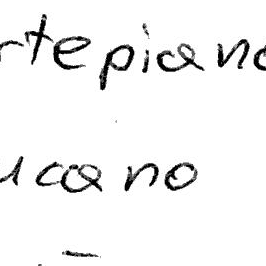 rtepiano
ucano